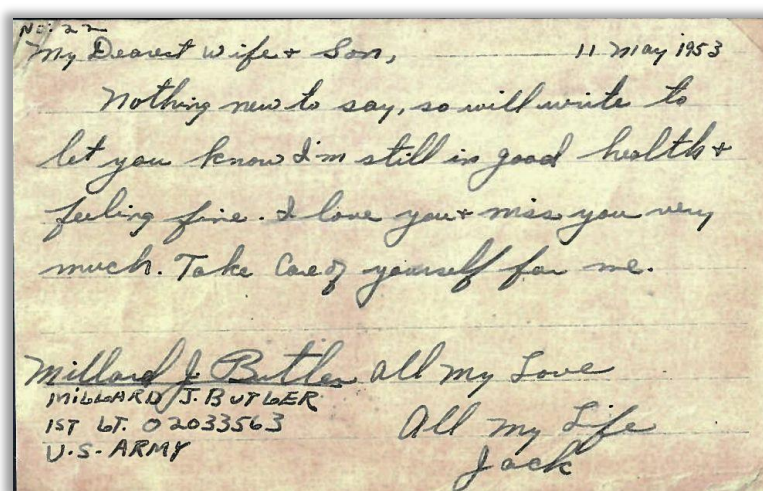 No: 22
My Dearest Wife & Son, 11 May 1953
Nothing new to say, so will write to
let you know I'm still in good health &
feeling fine. I love you & miss you very
much. Take Care of yourself for me.
Millard J. Butler All My Love
MILLARD J. BUTLER
1ST LT. 02033563 All My Life
U.S. ARMY Jack